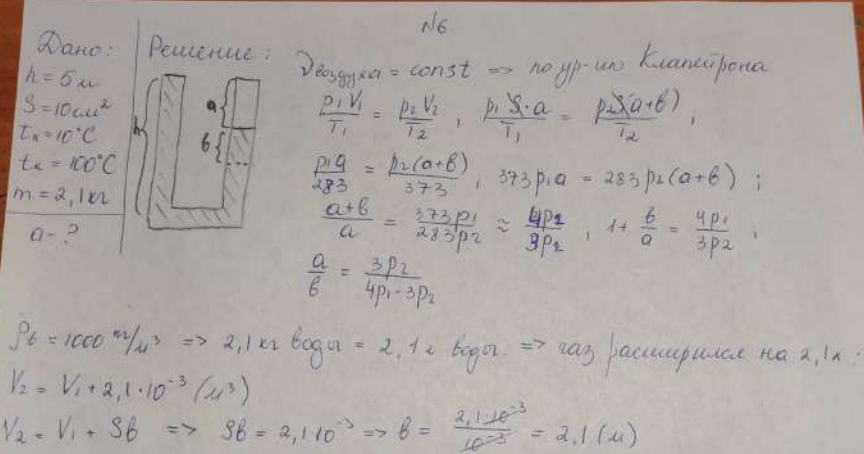 N6
Дано:
h = 5 м
S = 10 см²
tн = 10°C
tк = 100°C
m = 2,1 кг
a - ?
Решение:
h
a
b
νвоздуха = const => по ур-ию Клапейрона
p₁V₁/T₁ = p₂V₂/T₂, p₁S·a/T₁ = p₂S(a+b)/T₂;
p₁a/283 = p₂(a+b)/373, 373p₁a = 283p₂(a+b);
a+b/a = 373p₁/283p₂ ≈ 4p₂/3p₂, 1+ b/a = 4p₁/3p₂;
a/b = 3p₂/4p₁-3p₂
ρв = 1000 кг/м³ => 2,1 кг воды = 2,1 л воды. => газ расширился на 2,1 л:
V₂ = V₁ + 2,1·10⁻³ (м³)
V₂ = V₁ + Sb => Sb = 2,1·10⁻³ => b = 2,1·10⁻³/10⁻³ = 2,1 (м)